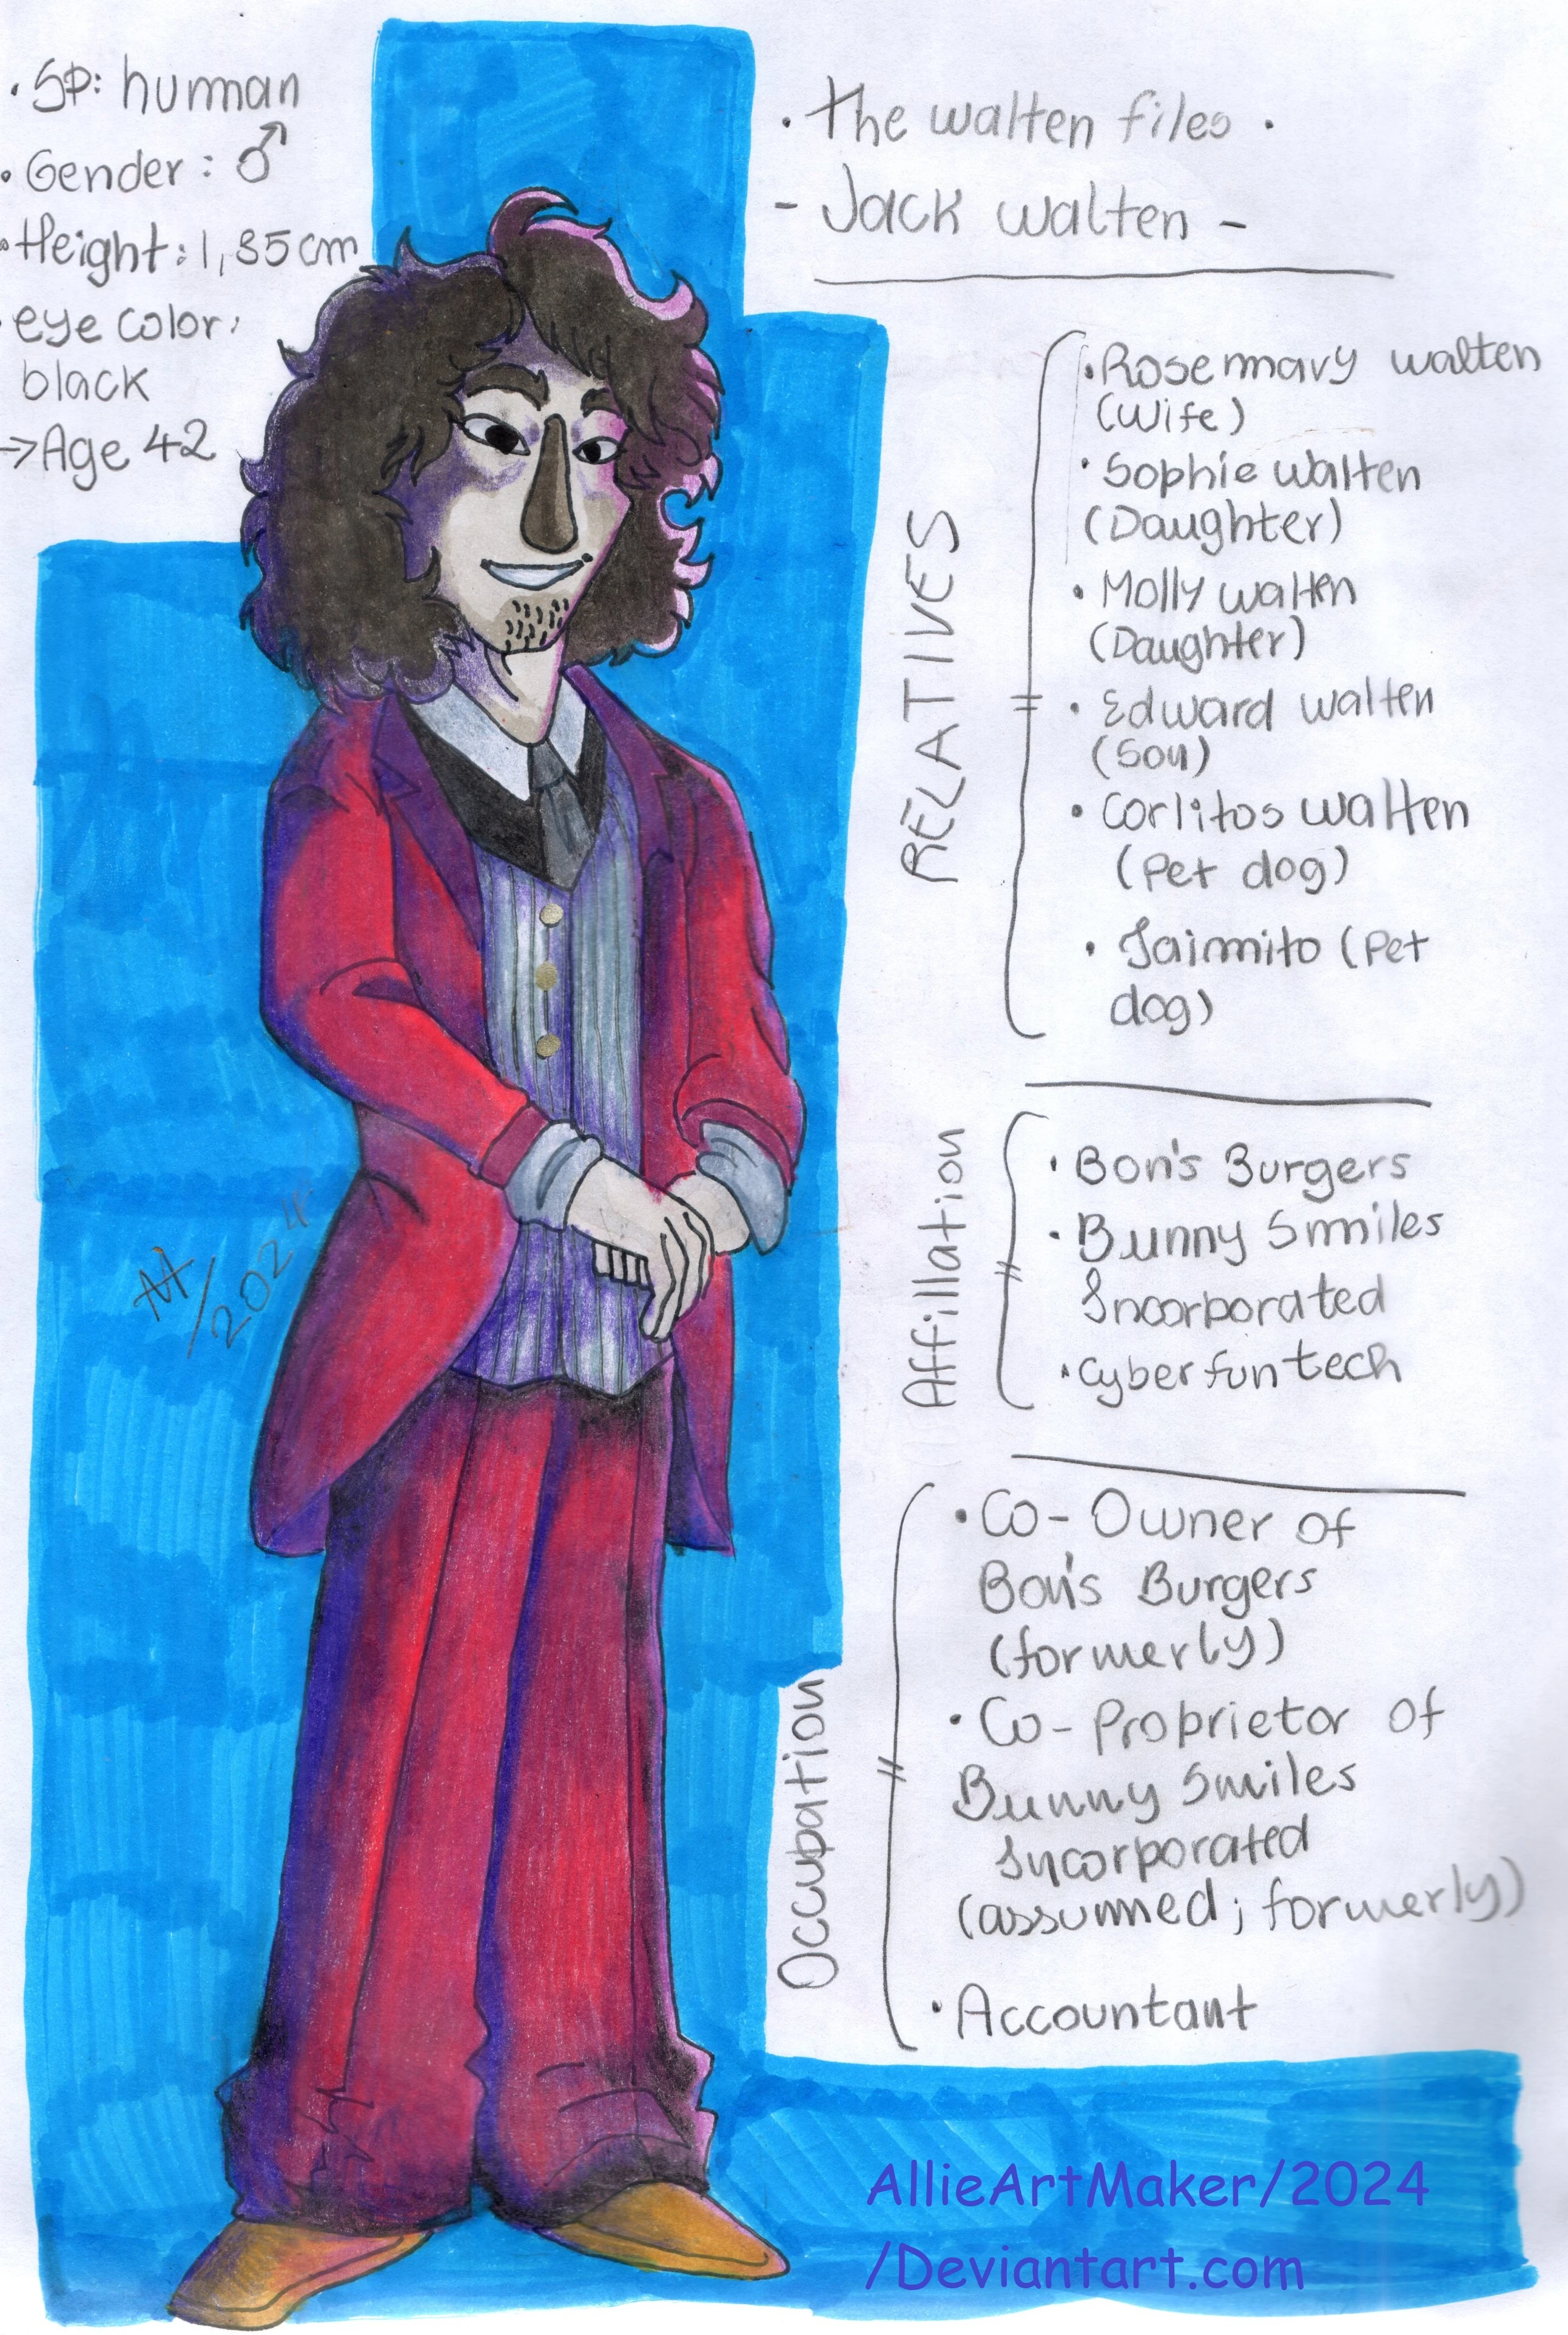 • SP: human
• Gender: ♂
• Height: 1,85cm
• eye color:
black
→ Age 42
• The walten files •
- Jack walten -
RELATIVES
• Rosemmary walten
(Wife)
• Sophie walten
(Daughter)
• Molly walten
(Daughter)
• Edward walten
(Son)
• Corlitos walten
(Pet dog)
• Jaimito (Pet
dog)
Affillation
• Bon's Burgers
• Bunny Smiles
Incorporated
• Cyberfun tech
Occupation
• Co-Owner of
Bon's Burgers
(formerly)
• Co-Proprietor of
Bunny Smiles
Incorporated
(assumed; formerly)
• Accountant
/2024
AllieArtMaker/2024
/Deviantart.com